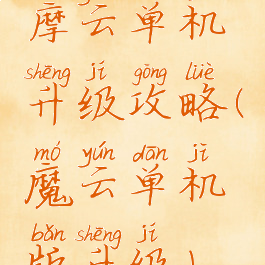 摩云单机
shēng jí gōng lüè
升级攻略(
mó yún dān jī
魔云单机
bǎn shēng jí
版升级)